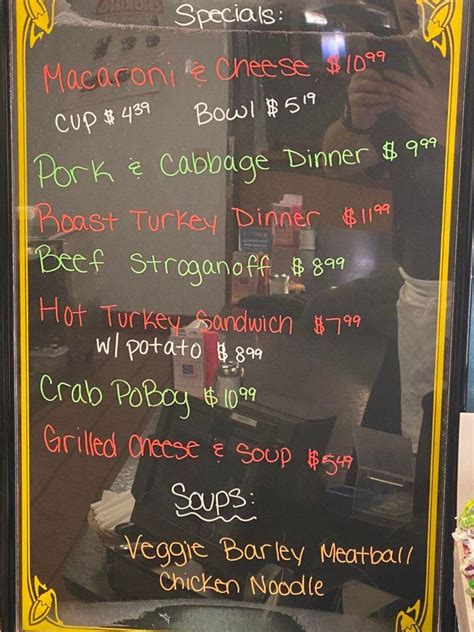 Specials:
Macaroni & Cheese $10.99
Cup $4.39 Bowl $5.19
Pork & Cabbage Dinner $9.99
Roast Turkey Dinner $11.99
Beef Stroganoff $8.99
Hot Turkey Sandwich $7.99
w/potato $8.99
Crab PoBoy $10.99
Grilled Cheese & Soup $5.49
Soups:
Veggie Barley Meatball
Chicken Noodle